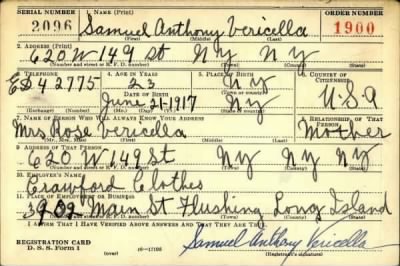 SERIAL NUMBER 1. NAME (Print) ORDER NUMBER
2096 Samuel Anthony Vericella 1900
(First) (Middle) (Last)
2. ADDRESS (Print)
620 W 149 St NY NY
(Number and street or R. F. D. number) (Town) (County) (State)
3. TELEPHONE 4. AGE IN YEARS 5. PLACE OF BIRTH 6. COUNTRY OF CITIZENSHIP
ED 42775 23 NY
DATE OF BIRTH (Town or county)
June 21-1917 NY U.S.A
(Exchange) (Number) (Mo.) (Day) (Yr.) (State or country)
7. NAME OF PERSON WHO WILL ALWAYS KNOW YOUR ADDRESS 8. RELATIONSHIP OF THAT PERSON
Mrs Rose Vericella Mother
(Mr., Mrs., Miss) (First) (Middle) (Last)
9. ADDRESS OF THAT PERSON
620 W 149 St NY NY NY
(Number and street or R. F. D. number) (Town) (County) (State)
10. EMPLOYER'S NAME
Crawford Clothes
11. PLACE OF EMPLOYMENT OR BUSINESS
3909 Main St Flushing Long Island
(Number and street or R. F. D. number) (Town) (County) (State)
I AFFIRM THAT I HAVE VERIFIED ABOVE ANSWERS AND THAT THEY ARE TRUE.
REGISTRATION CARD
D. S. S. Form 1 Samuel Anthony Vericella
(Registrant's signature)